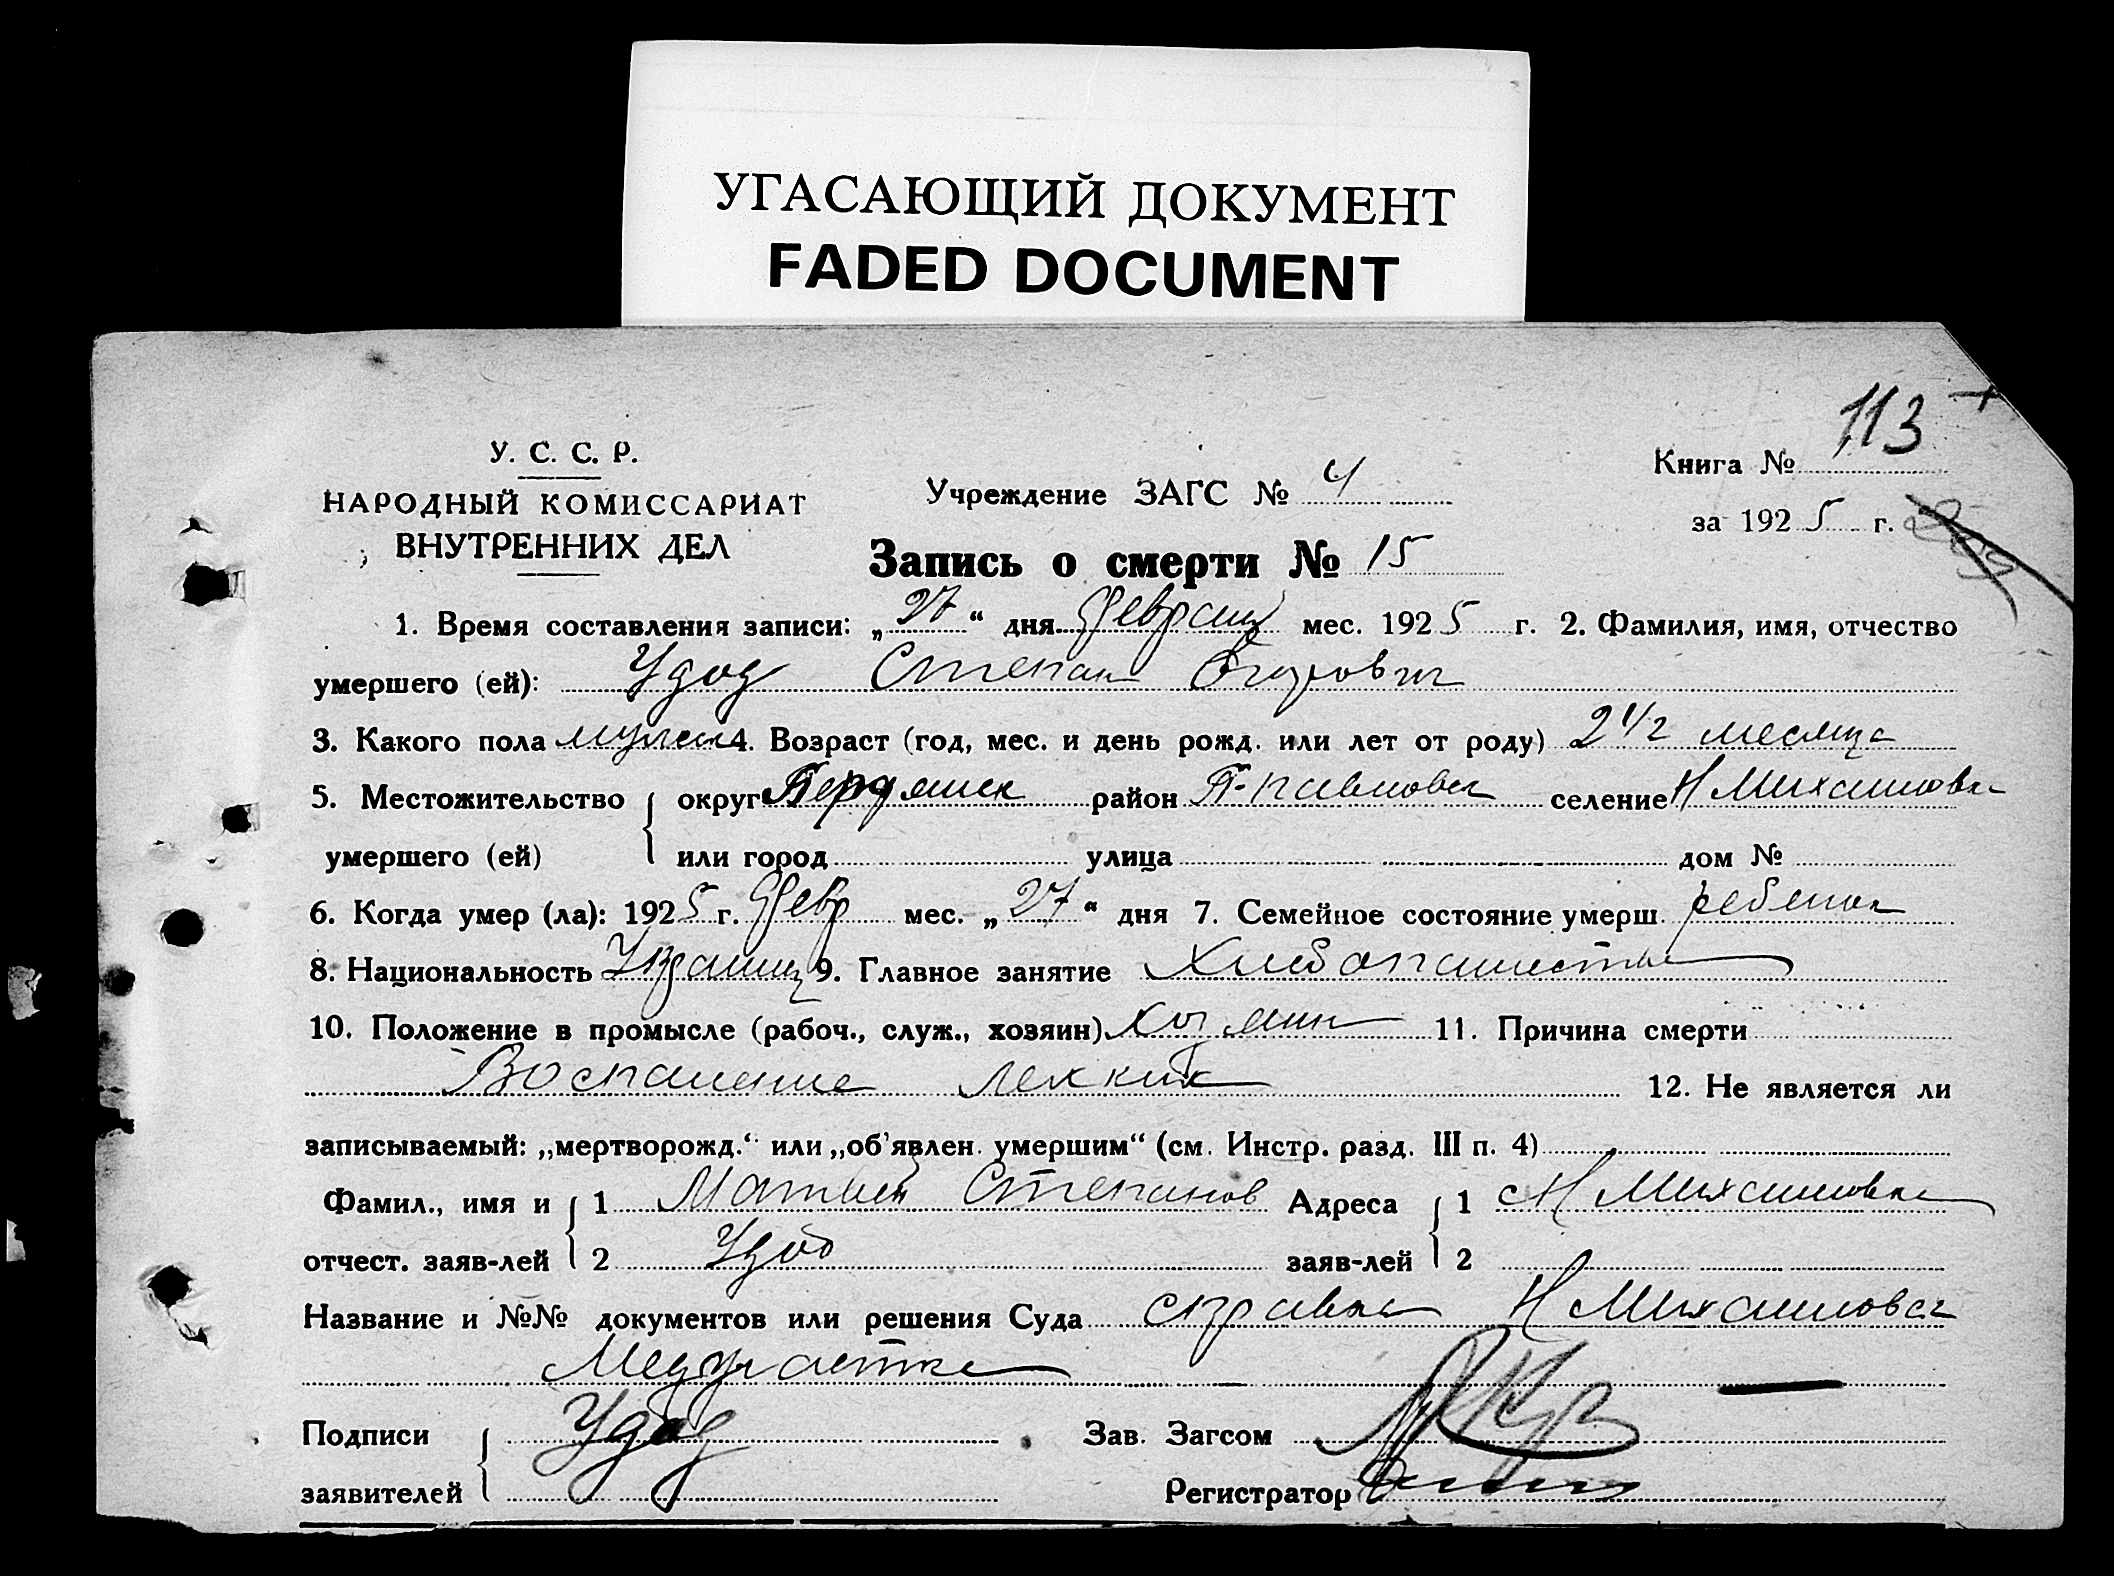 УГАСАЮЩИЙ ДОКУМЕНТ
FADED DOCUMENT
Книга № 113
У. С. С. Р.
НАРОДНЫЙ КОМИССАРИАТ
ВНУТРЕННИХ ДЕЛ
Учреждение ЗАГС № 4
за 1925 г.
Запись о смерти № 15
1. Время составления записи: „27“ дня февраля мес. 1925 г. 2. Фамилия, имя, отчество
умершего (ей): Удод Степан
3. Какого пола мужск 4. Возраст (год, мес. и день рожд. или лет от роду) 2 1/2 месяца
5. Местожительство округ Бердянск район П-павловка селение Н Михайловка
умершего (ей) или город улица дом №
6. Когда умер (ла): 1925 г. февр мес. „27“ дня 7. Семейное состояние умерш. ребенок
8. Национальность Украинц 9. Главное занятие Хлебопашество
10. Положение в промысле (рабоч., служ., хозяин) хозяин 11. Причина смерти
Воспаление легких 12. Не является ли
записываемый: „мертворожд.“ или „об'явлен. умершим“ (см. Инстр. разд. III п. 4)
Фамил., имя и 1 Матвей Степанов Адреса 1 с Н Михайловка
отчест. заяв-лей 2 Удод заяв-лей 2
Название и №№ документов или решения Суда справка Н Михайловка
Медучастка
Подписи Удод Зав. Загсом
заявителей Регистратор